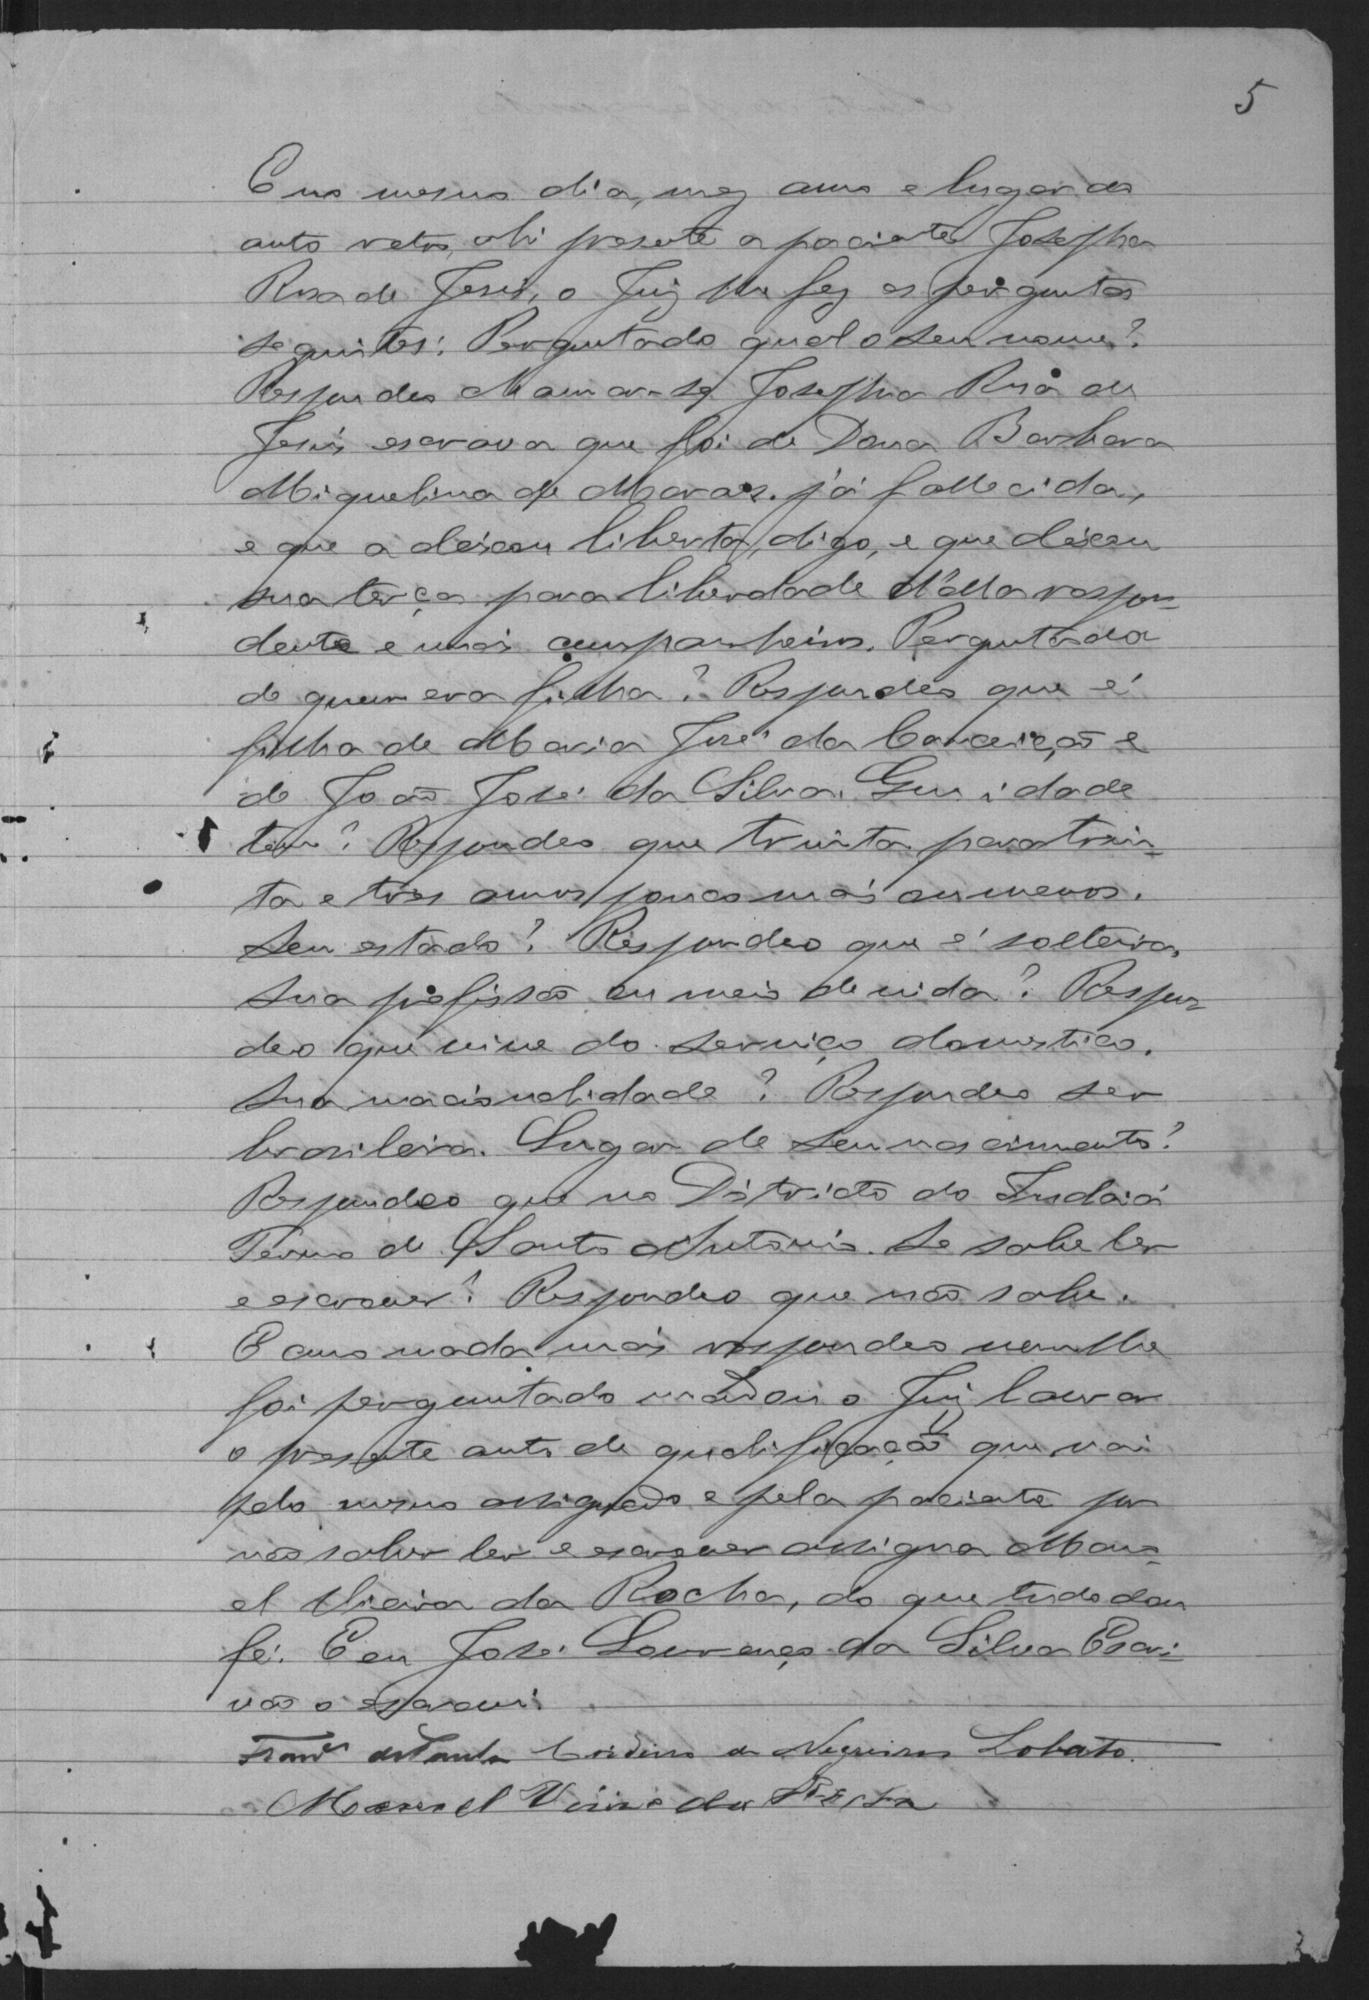 5
E no mesmo dia, mez anno e lugar do
auto retro, ahi presente a paciente Josepha
Rosa de Jesus, o Juiz lhe fez as perguntas
seguintes: Perguntado qual o seu nome?
Respondeo chamar-se Josepha Rosa de
Jesus escrava que foi de Dona Barbara
Miquelina de Moraes. já fallecida,
e que a deixou liberta, digo, e que deixou
sua terça para liberdade d'ella respon-
dente e mais companheiros. Perguntada
de quem era filha? Respondeo que é
filha de Maria José da Conceição e
de João José da Silva. Que idade
tem? Respondeo que trinta para trin-
ta e tres annos pouco mais ou menos.
Seu estado? Respondeo que é solteira,
Sua profissão ou meio de vida? Respon-
deo que vive do serviço domestico.
Sua nacionalidade? Respondeo ser
brasileira. Lugar de seu nascimento?
Respondeo que no Districto do Indaiá
Termo de Santo Antonio. Se sabe ler
e escrever? Respondeo que não sabe.
E como nada mais respondeo nem lhe
foi perguntado mandou o Juiz lavrar
o presente auto de qualificação que vai
pelo mesmo assignado e pela paciente por
não saber ler e escrever assigna Mano-
el Vieira da Rocha, do que tudo dou
fé. E eu José Lourenço da Silva Escri-
vão o escrevi.
Franco de Paula Cordeiro de Negreiros Lobato.
Manoel Vieira da Rocha